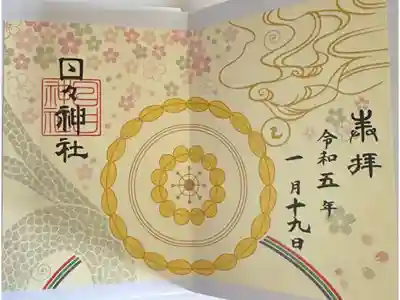 奉拝
令和五年
一月十九日
2
日々神社